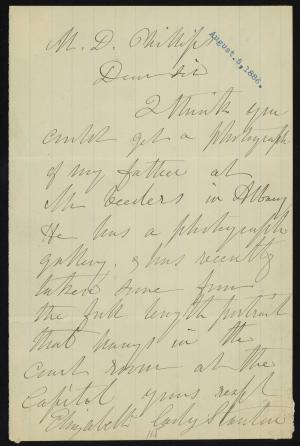 M. D. Phillips
August. 5, 1886.
Dear sir
I think you
could get a photograph
of my father at
Mr Veeders in Albany
He has a photograph
gallery, & has recently
taken some from
the full length portrait
that hangs in the
court room at the
Capitol yours respt
Elizabeth Cady Stanton